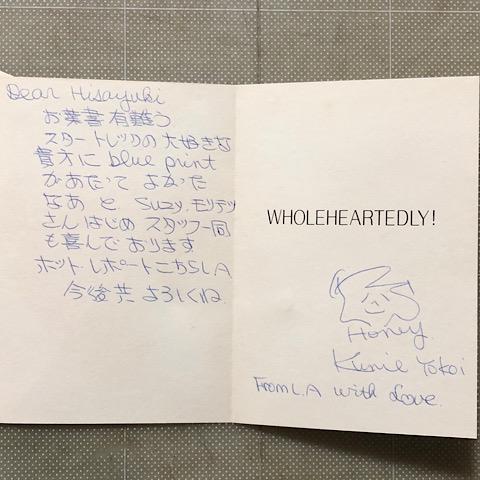 Dear Hisayuki
お葉書有難う
スタートレックの大好きな
貴方に blue print
があたって よかった
なあ と Suzy, モリテツ
さん はじめ スタッフ一同
も喜んで おります
ホット・レポートこちらLA
今後共 よろしくね
WHOLEHEARTEDLY!
Honey
Kunie Yokoi
From L.A with Love